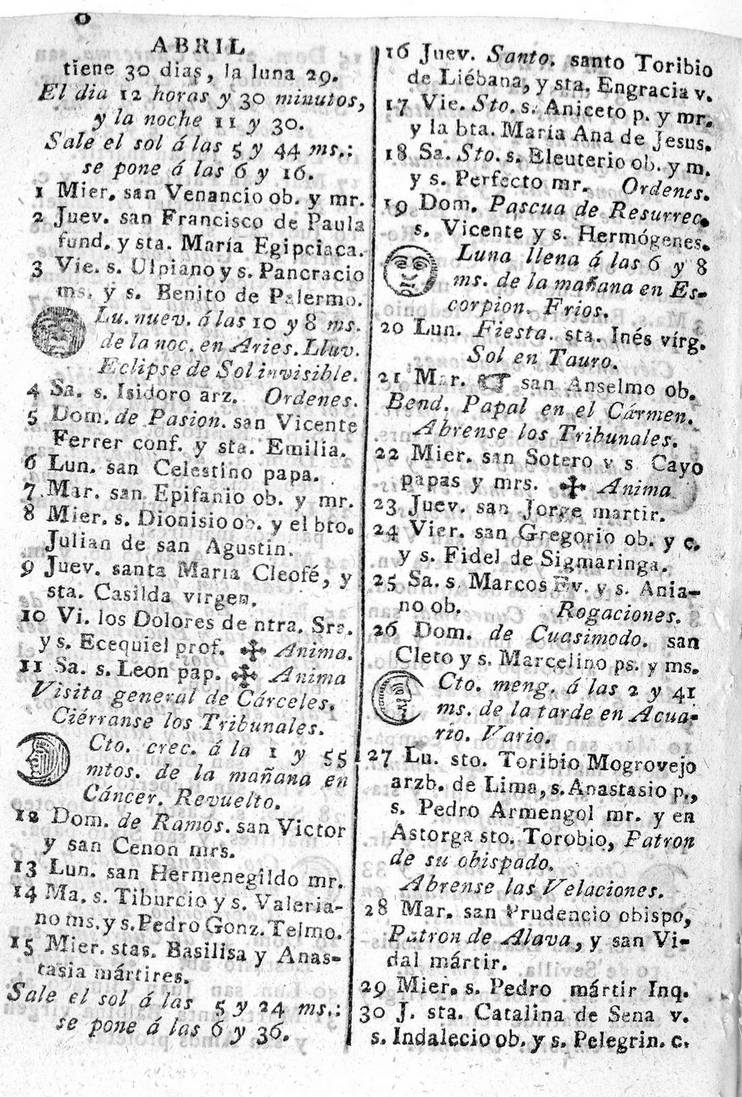 8
ABRIL
tiene 30 dias, la luna 29.
El dia 12 horas y 30 minutos,
y la noche 11 y 30.
Sale el sol á las 5 y 44 ms.:
se pone á las 6 y 16.
1 Mier. san Venancio ob. y mr.
2 Juev. san Francisco de Paula
fund. y sta. María Egipciaca.
3 Vie. s. Ulpiano y s. Pancracio
ms. y s. Benito de Palermo.
Lu. nuev. á las 10 y 8 ms.
de la noc. en Aries. Lluv.
Eclipse de Sol invisible.
4 Sa. s. Isidoro arz. Ordenes.
5 Dom. de Pasion. san Vicente
Ferrer conf. y sta. Emilia.
6 Lun. san Celestino papa.
7 Mar. san Epifanio ob. y mr.
8 Mier. s. Dionisio ob. y el bto.
Julian de san Agustin.
9 Juev. santa Maria Cleofé, y
sta. Casilda virgen.
10 Vi. los Dolores de ntra. Sra.
y s. Ecequiel prof. ✠ Anima.
11 Sa. s. Leon pap. ✠ Anima
Visita general de Cárceles.
Ciérranse los Tribunales.
Cto. crec. á la 1 y 55
mtos. de la mañana en
Cáncer. Revuelto.
12 Dom. de Ramos. san Victor
y san Cenon mrs.
13 Lun. san Hermenegildo mr.
14 Ma. s. Tiburcio y s. Valeria-
no ms. y s. Pedro Gonz. Telmo.
15 Mier. stas. Basilisa y Anas-
tasia mártires.
Sale el sol á las 5 y 24 ms.:
se pone á las 6 y 36.
16 Juev. Santo. santo Toribio
de Liébana, y sta. Engracia v.
17 Vie. Sto. s. Aniceto p. y mr.
y la bta. María Ana de Jesus.
18 Sa. Sto. s. Eleuterio ob. y m.
y s. Perfecto mr. Ordenes.
19 Dom. Pascua de Resurrec.
s. Vicente y s. Hermógenes.
Luna llena á las 6 y 8
ms. de la mañana en Es-
corpion. Frios.
20 Lun. Fiesta. sta. Inés vírg.
Sol en Tauro.
21 Mar. ☞ san Anselmo ob.
Bend. Papal en el Cármen.
Abrense los Tribunales.
22 Mier. san Sotero y s Cayo
papas y mrs. ✠ Anima
23 Juev. san Jorge martir.
24 Vier. san Gregorio ob. y c.
y s. Fidel de Sigmaringa.
25 Sa. s. Marcos Ev. y s. Ania-
no ob. Rogaciones.
26 Dom. de Cuasimodo. san
Cleto y s. Marcelino ps. y ms.
Cto. meng. á las 2 y 41
ms. de la tarde en Acua-
rio. Vario.
27 Lu. sto. Toribio Mogrovejo
arzb. de Lima, s. Anastasio p.,
s. Pedro Armengol mr. y en
Astorga sto. Torobio, Patron
de su obispado.
Abrense las Velaciones.
28 Mar. san Prudencio obispo,
Patron de Alava, y san Vi-
dal mártir.
29 Mier. s. Pedro mártir Inq.
30 J. sta. Catalina de Sena v.
s. Indalecio ob. y s. Pelegrin. c.